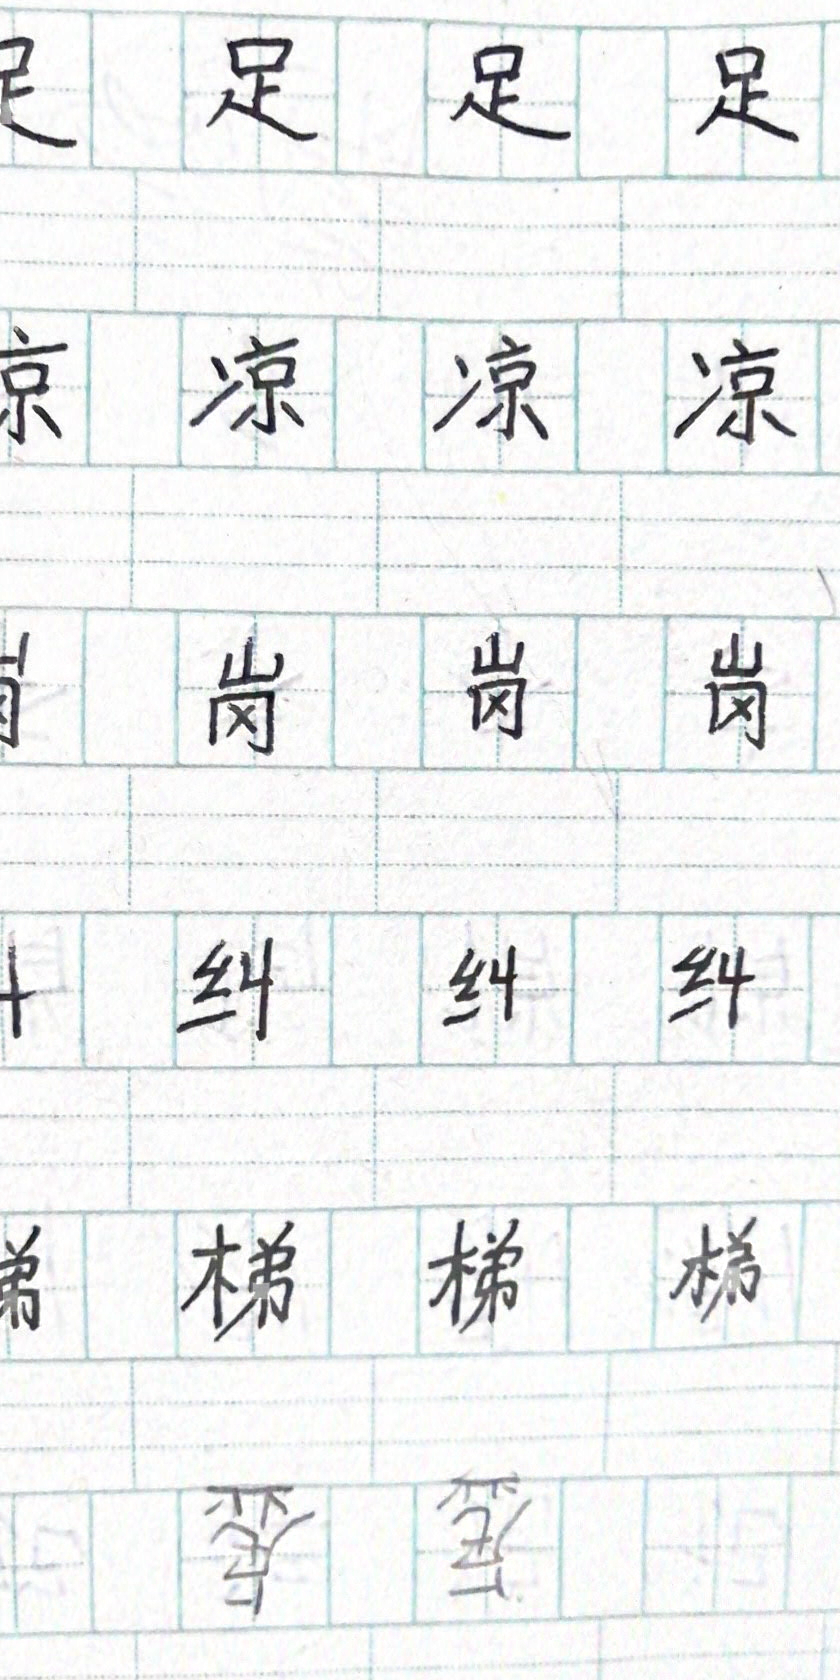 足 足 足 足
凉 凉 凉 凉
岗 岗 岗 岗
纠 纠 纠 纠
梯 梯 梯 梯